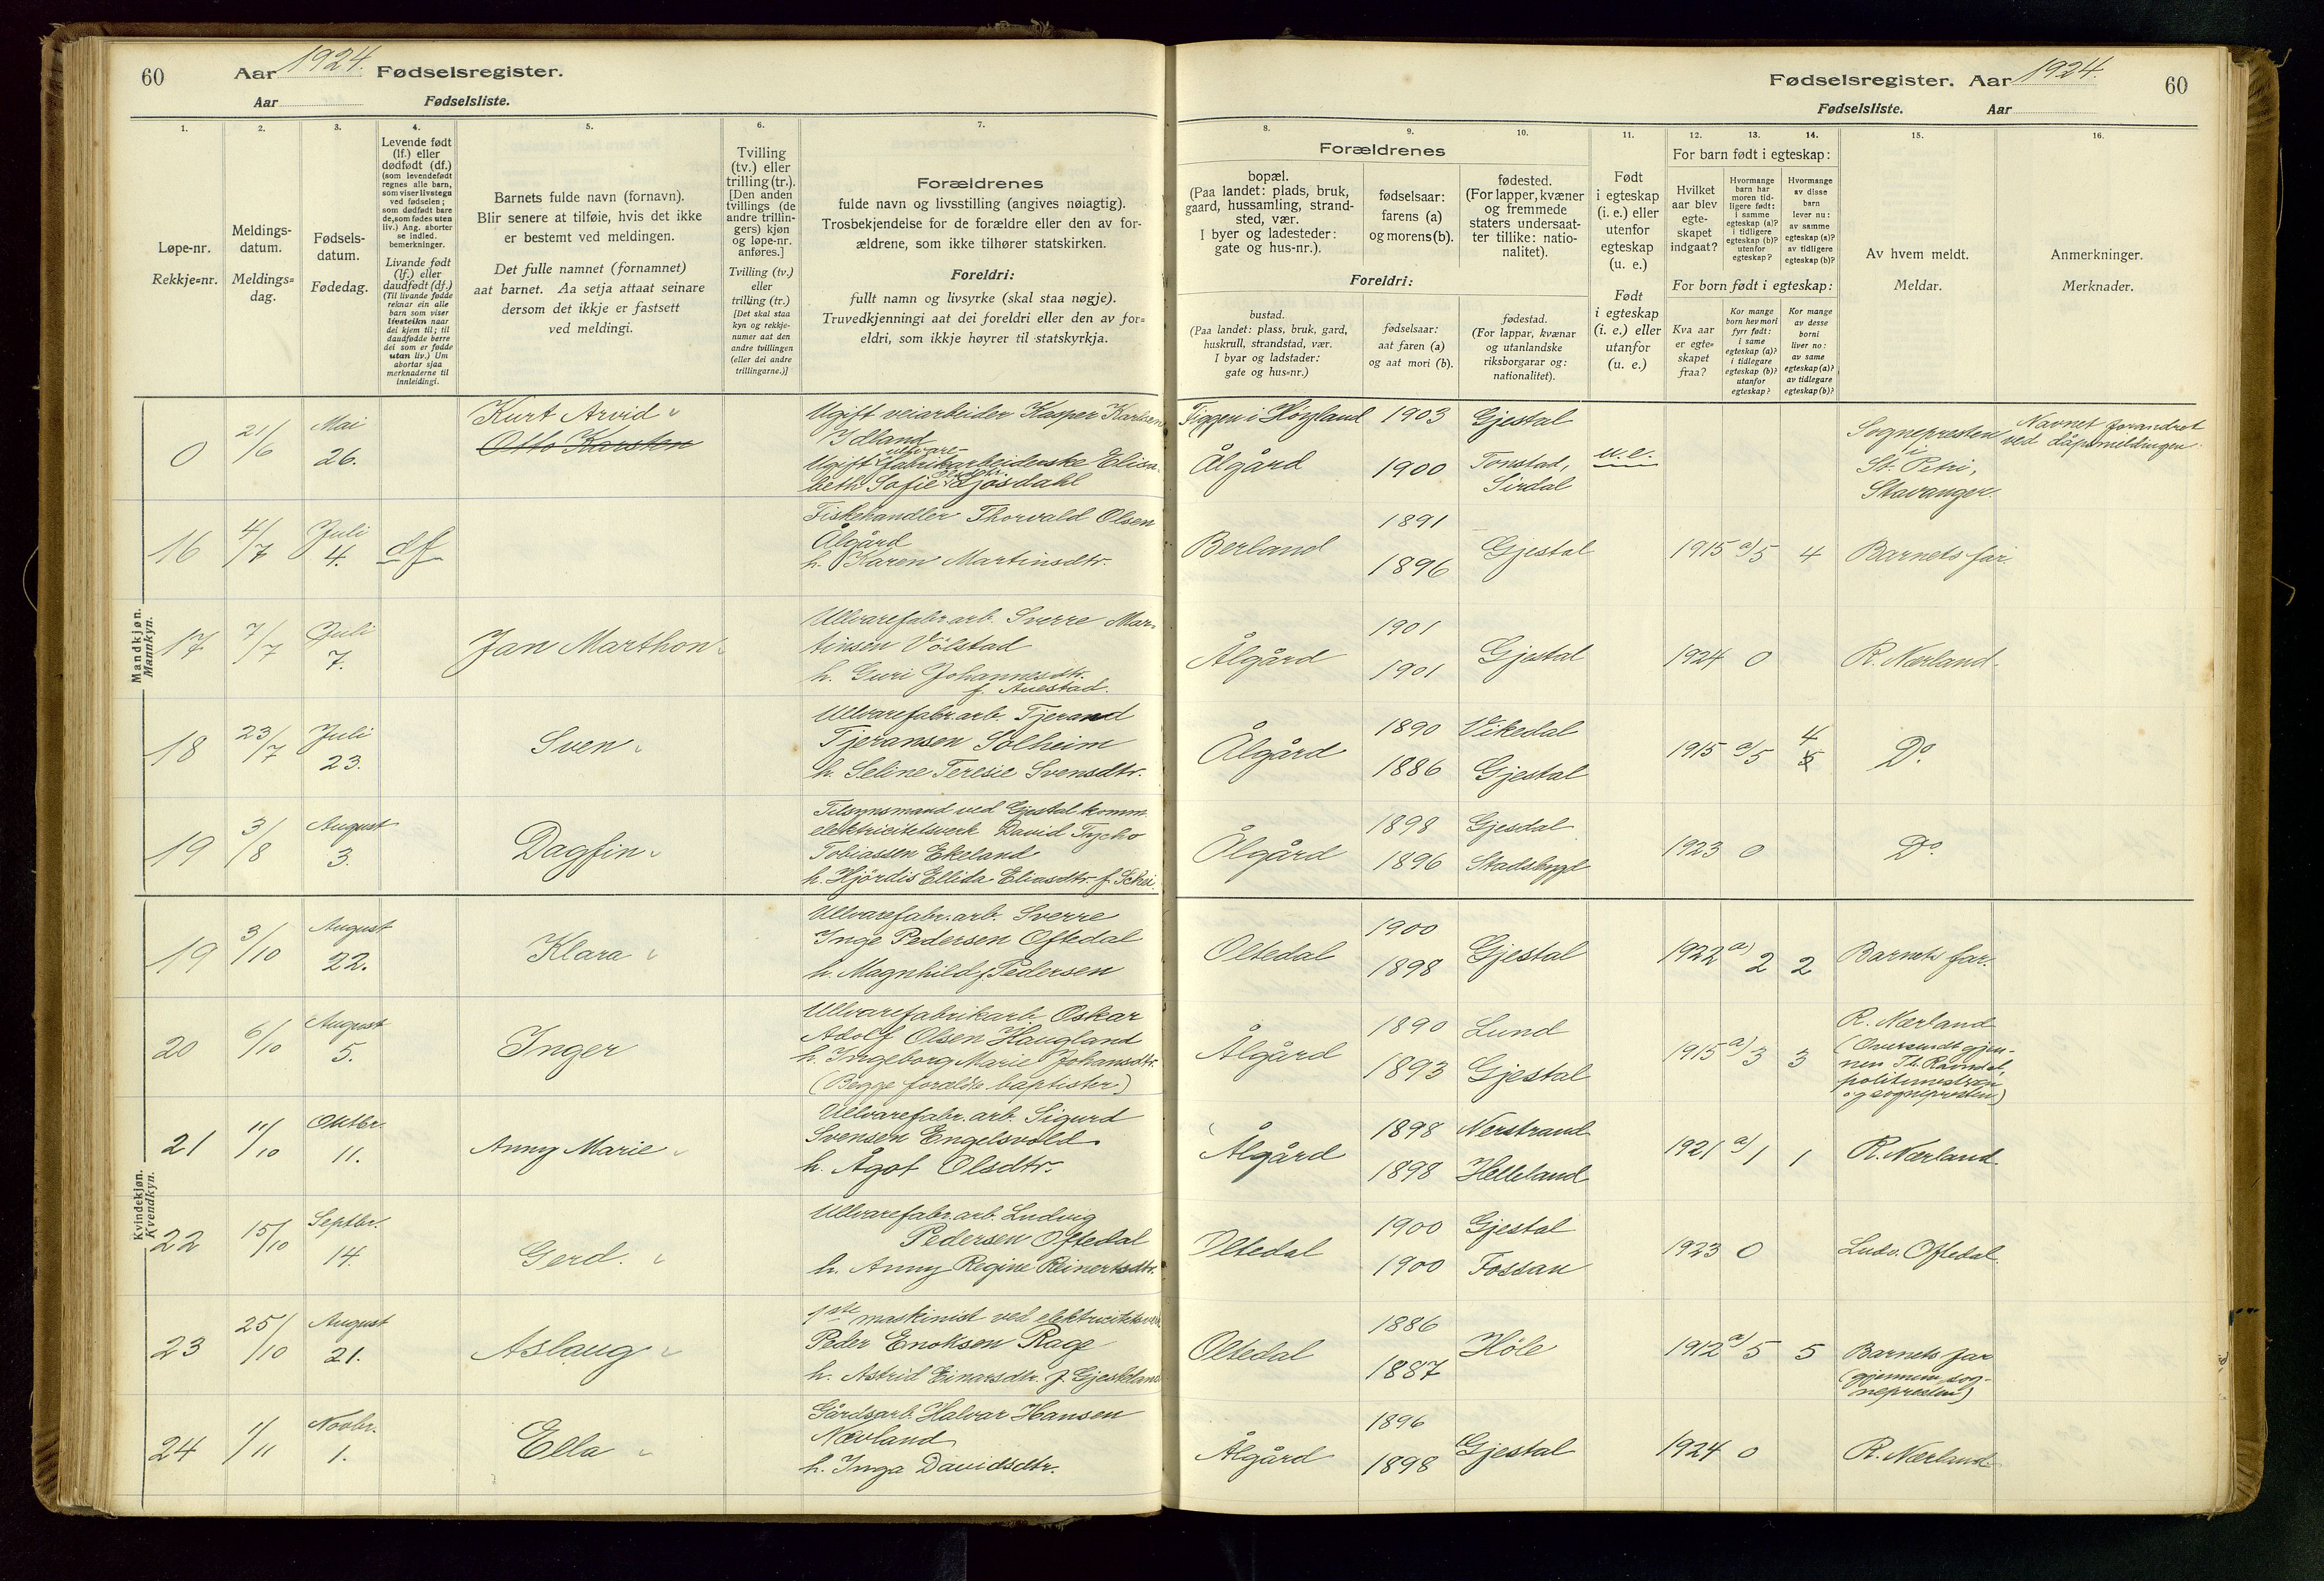 60
Aar 1924. Fødselsregister.
Aar Fødselsliste.
1.
2.
3.
4.
5.
6.
7.
Løpe-nr.
Rekkje=nr.
Meldings-
datum.
Meldings=
dag.
Fødsels-
datum.
Fødedag.
Levende født
(lf.) eller
dødfødt (df.)
(som levendefødt
regnes alle barn,
som viser livstegn
ved fødselen;
som dødfødt bare
de, som fødes uten
liv.) Ang. aborter
se indled.
bemerkninger.
Livande født
(lf.) eller
daudfødt (df.)
(Til livande fødde
reknar ein alle
barn som viser
livsteikn naar
dei kjem til; til
daudfødde berre
dei som er fødde
utan liv.) Um
abortar sjaa
merknaderne til
innleidingi.
Barnets fulde navn (fornavn).
Blir senere at tilføie, hvis det ikke
er bestemt ved meldingen.
Det fulle namnet (fornamnet)
aat barnet. Aa setja attaat seinare
dersom det ikkje er fastsett
ved meldingi.
Tvilling
(tv.) eller
trilling (tr.).
[Den anden
tvillings (de
andre trillin-
gers) kjøn
og løpe-nr.
anføres.]
Tvilling (tv.)
eller
trilling (tr.)
[Det skal staa
kyn og rekkje-
numer aat den
andre tvillingen
(eller dei andre
trillingarne.)]
Forældrenes
fulde navn og livsstilling (angives nøiagtig).
Trosbekjendelse for de forældre eller den av for-
ældrene, som ikke tilhører statskirken.
Foreldri:
fullt namn og livsyrke (skal staa nøgje).
Truvedkjenningi aat dei foreldri eller den av for=
eldri, som ikkje høyrer til statskyrkja.
Mandkjøn.
Mannkyn.
0 21/6 Mai 26.
Kurt Arvid
Otto Karsten
Ugift veiarbeider Kasper Karlsen
Ydland
Ugift ullvare-
fabrikarbeiderske Elisa-
beth Sofie Pedersdtr. Gjøsdahl
16 4/7 Juli 4. df
Fiskehandler Thorvald Olsen
Ålgård
h. Karen Martinsdtr.
17 7/7 Juli 7.
Jan Marthon
Ullvarefabr.arb. Sverre Mar-
tinsen Völstad
h. Guri Johannesdtr.
f. Auestad.
18 23/7 Juli 23.
Sven
Ullvarefabr.arb. Tjerand
Tjeransen Solheim
h. Seline Teresie Svensdtr.
19 3/8 August 3.
Dagfin
Tilsynsmand ved Gjestal komm.
elektricitetsverk David Tycho
Tobiassen Ekeland
h. Hjördis Ellida Eliasdtr. f. Schei.
Kvindekjøn.
Kvendkyn.
19 3/10 August 22.
Klara
Ullvarefabr.arb. Sverre
Inge Pedersen Oftedal
h. Magnhild f. Pedersen
20 6/10 August 5.
Inger
Ullvarefabrikarb. Oskar
Adolf Olsen Haugland
h. Ingeborg Marie Johansdtr.
(Begge forældre baptister)
21 11/10 Oktbr. 11.
Anny Marie
Ullvarefabr.arb. Sigurd
Svensen Engelsvold
h. Ågot Olsdtr.
22 15/10 Septbr. 14.
Gerd.
Ullvarefabr.arb. Ludvig
Pedersen Oftedal
h. Anny Regine Reinertsdtr.
23 25/10 August 21.
Aslaug
1ste maskinist ved elektricitetsverk
Peder Enoksen Rage
h. Astrid Einarsdtr. f. Gjesteland
24 1/11 Novbr. 1.
Ella
Gårdsarb. Halvar Hansen
Nævland
h. Inga Davidsdtr.
Fødselsregister. Aar 1924. 60
Fødselsliste. Aar
8.
9.
10.
11.
12.
13.
14.
15.
16.
Forældrenes
bopæl.
(Paa landet: plads, bruk,
gaard, hussamling, strand-
sted, vær.
I byer og ladesteder:
gate og hus-nr.).
fødselsaar:
farens (a)
og morens (b).
fødested.
(For lapper, kvæner
og fremmede
staters undersaat-
ter tillike: natio-
nalitet).
Foreldri:
bustad.
(Paa landet: plass, bruk, gard,
huskrull, strandstad, vær.
I byar og ladstader:
gate og hus=nr.)
fødselsaar:
aat faren (a)
og aat mori (b).
fødestad.
(For lappar, kvænar
og utanlandske
riksborgarar og:
nationalitet).
Født
i egteskap
(i. e.) eller
utenfor
egteskap
(u. e.)
Født
i egteskap
(i. e.) eller
utanfor
(u. e.)
For barn født i egteskap:
Hvilket
aar blev
egte-
skapet
indgaat?
Hvormange
barn har
moren tid-
ligere født:
i samme
egteskap (a)?
i tidligere
egteskap (b)?
utenfor
egteskap?
Hvormange
av disse
barn
lever nu:
av samme
egteskap (a)?
av tidligere
egteskap (b)?
For born født i egteskap:
Kva aar
er egte=
skapet
fraa?
Kor mange
born hev mori
fyrr født:
i same
egteskap (a)?
i tidlegare
egteskap (b)?
utanfor
egteskap?
Kor mange
av desse
borni
liver no:
av same
egteskap (a)?
av tidlegare
egteskap (b)?
Av hvem meldt.
Meldar.
Anmerkninger.
Merknader.
Figgen i Högsland 1903 Gjestal
Ålgård 1900 Tonstad,
Sirdal
u.e.
Sognepresten
i
St. Petri,
Stavanger.
Navnet forandret
ved dåpsmeldingen.
Berland 1891
1896 Gjestal 1915 a)5 4 Barnets far.
Ålgård 1901
1901 Gjestal 1924 0 R. Nærland.
Ålgård 1890 Vikedal
1886 Gjestal 1915 a)5 4 Do.
Ålgård 1898 Gjesdal
1896 Stadsbygd 1923 0 Do.
Oltedal 1900
1898 Gjestal 1922 a) 2 2 Barnets far.
Ålgård 1890 Lund
1893 Gjestal 1915 a) 3 3
R. Nærland
(Oversendt gjen-
nem Th. Ravndal,
politimesteren
og sognepresten)
Ålgård 1898 Nerstrand
1898 Helleland 1921 a) 1 1 R. Nærland.
Oltedal 1900 Gjestal
1900 Fossan 1923 0 Ludv. Oftedal.
Oltedal 1886
1887 Höle 1912 a) 5 5
Barnets far
(gjennem sog-
nepresten)
Ålgård 1896
1898 Gjestal 1924 0 R. Nærland.